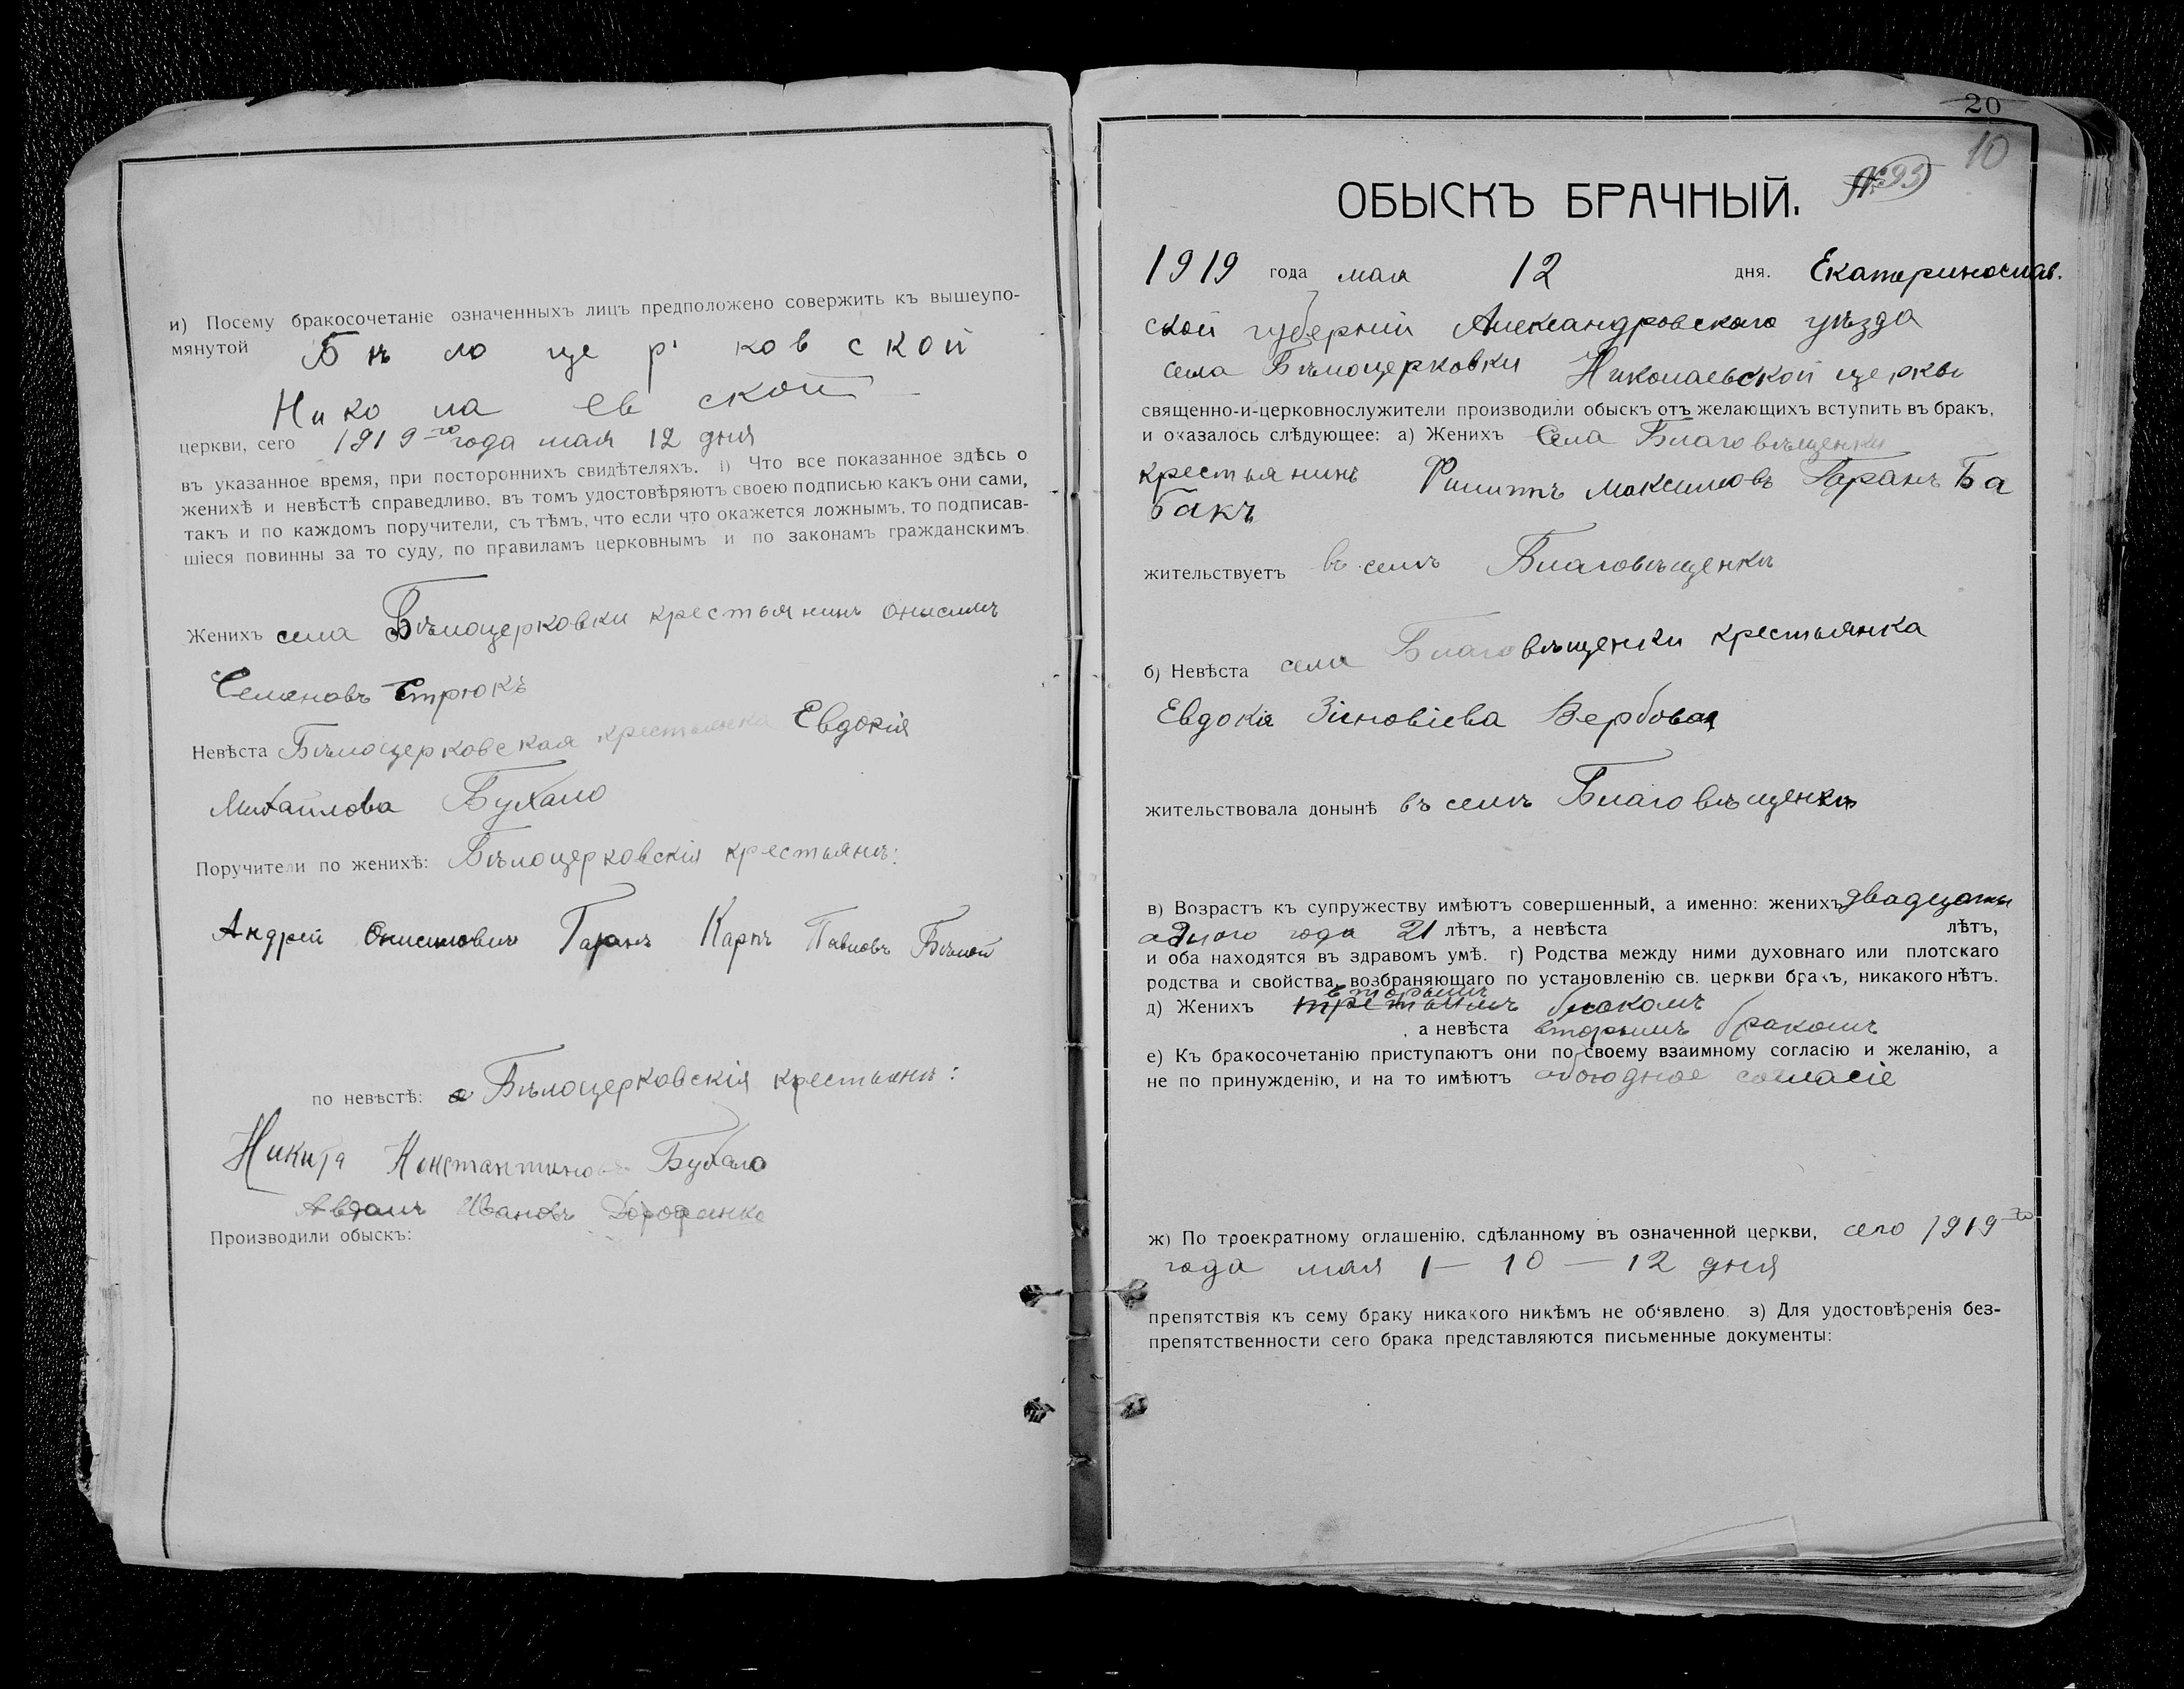 и) Посему бракосочетаніе означенныхъ лицъ предположено совержить къ вышеупо-
мянутой Бѣлоцерковской
Николаевской
церкви, сего 1919-го года мая 12 дня
въ указанное время, при постороннихъ свидѣтеляхъ. і) Что все показанное здѣсь о
женихѣ и невѣстѣ справедливо, въ томъ удостовѣряютъ своею подписью какъ они сами,
такъ и по каждомъ поручители, съ тѣмъ, что если что окажется ложнымъ, то подписав-
шіеся повинны за то суду, по правиламъ церковнымъ и по законамъ гражданскимъ.
Женихъ села Бѣлоцерковки крестьянинъ Онисимъ
Семеновъ Стрюкъ
Невѣста Бѣлоцерковская крестьянка Евдокія
Михайлова Бухало
Поручители по женихѣ: Бѣлоцерковскія крестьянѣ:
Андрей Онисимовичъ Гаранъ Карпъ Павловъ Бѣлой
по невѣстѣ: Бѣлоцерковскія крестьянѣ:
Никита Константиновъ Бухало
Ивановъ
Производили обыскъ:
20
10
№ 93
ОБЫСКЪ БРАЧНЫЙ.
1919 года мая 12 дня. Екатеринослав.
ской губерніи Александровскаго уѣзда
села Бѣлоцерковки Николаевской церкви
священно-и-церковнослужители производили обыскъ отъ желающихъ вступить въ бракъ,
и оказалось слѣдующее: а) Женихъ Села Благовѣщенки
крестьянинъ Филиппъ Максимовъ Гаранъ Ба
бакъ
жительствуетъ въ селѣ Благовѣщенкѣ
б) Невѣста села Благовѣщенки крестьянка
Евдокія Зіновіева Вербовая
жительствовала донынѣ въ селѣ Благовѣщенкѣ
в) Возрастъ къ супружеству имѣютъ совершенный, а именно: женихъ двадцать
одного года 21 лѣтъ, а невѣста лѣтъ,
и оба находятся въ здравомъ умѣ. г) Родства между ними духовнаго или плотскаго
родства и свойства, возбраняющаго по установленію св. церкви бракъ, никакого нѣтъ.
вторымъ
д) Женихъ третьимъ бракомъ
, а невѣста вторымъ бракомъ
е) Къ бракосочетанію приступаютъ они по своему взаимному согласію и желанію, а
не по принужденію, и на то имѣютъ обоюдное согласіе
ж) По троекратному оглашенію, сдѣланному въ означенной церкви, сего 1919-го
года мая 1 — 10 — 12 дня
препятствія къ сему браку никакого никѣмъ не об'явлено. з) Для удостовѣренія без-
препятственности сего брака представляются письменные документы: